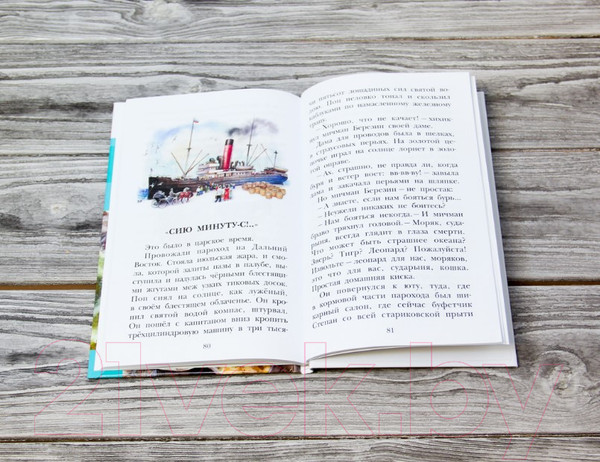 «СИЮ МИНУТУ-С!..»
Это было в царское время.
Провожали пароход на Дальний
Восток. Стояла июльская жара, и смо-
ла, которой залиты пазы в палубе, вы-
ступила и надулась чёрными блестящи-
ми жгутами меж узких тиковых досок.
Поп сиял на солнце, как лужёный,
в своём блестящем облаченье. Он кро-
пил святой водой компас, штурвал.
Он пошёл с капитаном вниз кропить
трёхцилиндровую машину в три тыся-
80
пятьсот лошадиных сил святой во-
Поп неловко топал и скользил
каблуками по намасленному железному
трапу.
— Хорошо, что не качает! — хихик-
мичман Березин своей даме.
Дама для проводов была в шелках,
в страусовых перьях. На золотой це-
играл на солнце лорнет в золо-
той оправе.
— Ах, страшно, не правда ли, когда
буря и ветер воет: вв-вв-ву! — завыла
дама и закачала перьями на шляпке.
Но мичман Березин — не простак:
— А знаете, если нам бояться бурь...
— Неужели никаких не боитесь?
— Нам бояться некогда. — И мичман
браво тряхнул головой. — Моряк, суда-
рыня, всегда глядит в глаза смерти.
Что может быть страшнее океана?
Зверь? Тигр? Леопард? Пожалуйста!
Извольте — леопард для нас, моряков,
это что для вас, сударыня, кошка.
Простая домашняя киска.
Он повернулся к юту, туда, где
в кормовой части парохода был ши-
карный салон, где сейчас буфетчик
Степан со всей стариковской прыти
81